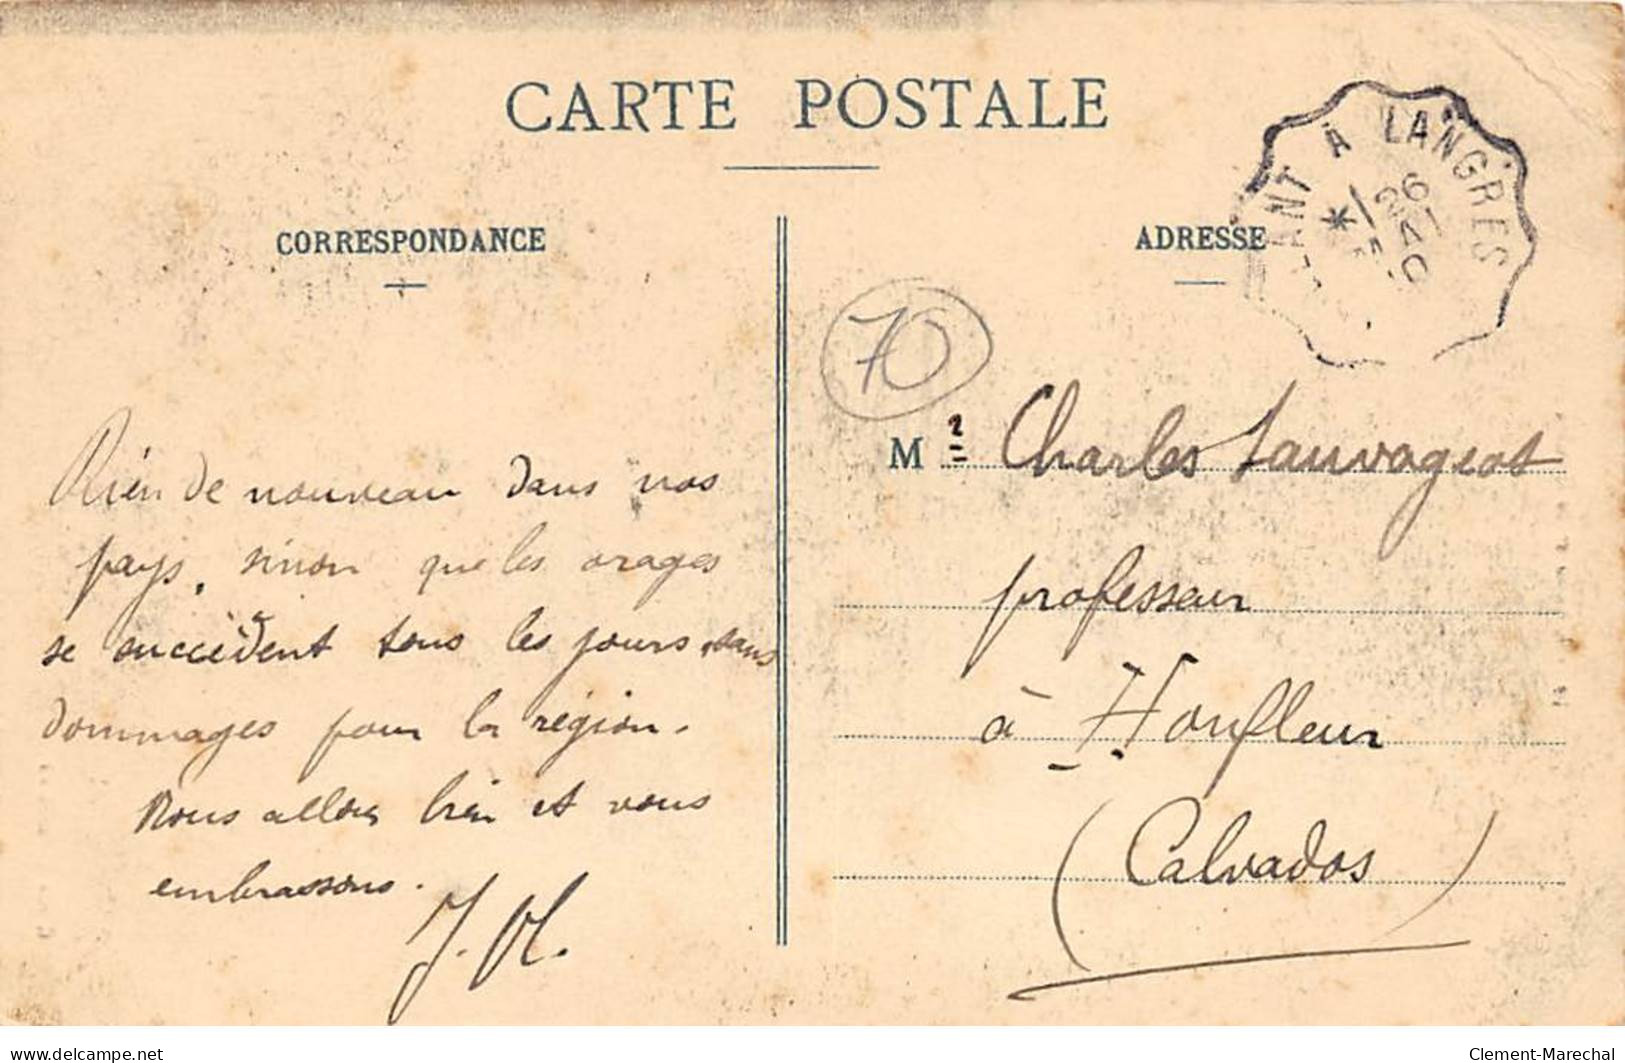 CARTE POSTALE
CORRESPONDANCE
Rien de nouveau dans nos
pays, sinon que les orages
se succèdent tous les jours, sans
dommages pour la région.
Nous allons bien et vous
embrassons.
ADRESSE
ANT A LANGRES
6
MAI
70
Mr Charles Sauvageot
professeur
à Honfleur
(Calvados)
www.delcampe.net
Clement-Marechal